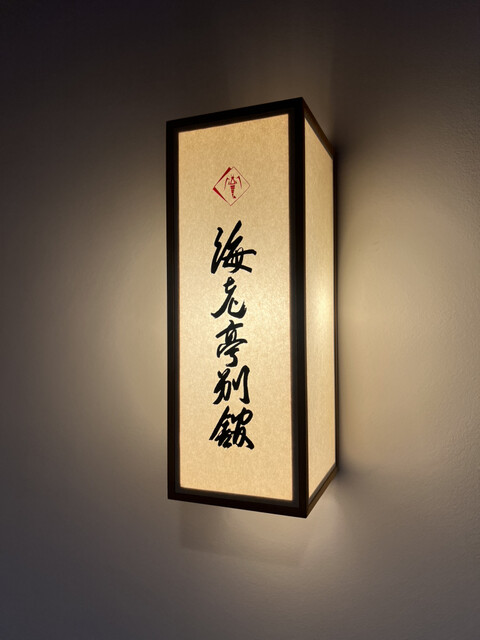 海老亭別館